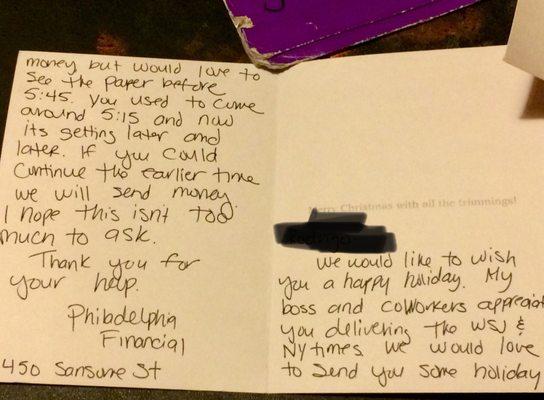 Merry Christmas with all the trimmings!
We would like to wish
you a happy holiday. My
boss and coworkers appreciat
you delivering the WSJ &
NYtimes. We would love
to send you some holiday
money but would love to
see the paper before
5:45. You used to come
around 5:15 and now
its getting later and
later. If you could
continue the earlier time
we will send money.
I hope this isn't too
much to ask.
Thank you for
your help.
Philadelphia
Financial
450 Sansome St